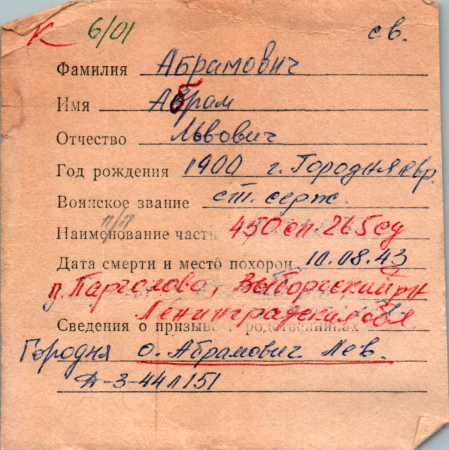 К 6/01 св.
Фамилия Абрамович
Имя Абрам
Отчество Львович
Год рождения 1900 г. Городня евр.
Воинское звание ст. серж.
п/п
Наименование части 450 сп 265 сд
Дата смерти и место похорон 10.08.43
п. Парголово, Выборгский рн
Ленинградская обл
Сведения о призыве и родственниках
Городня о. Абрамович Лев.
-3-44л151